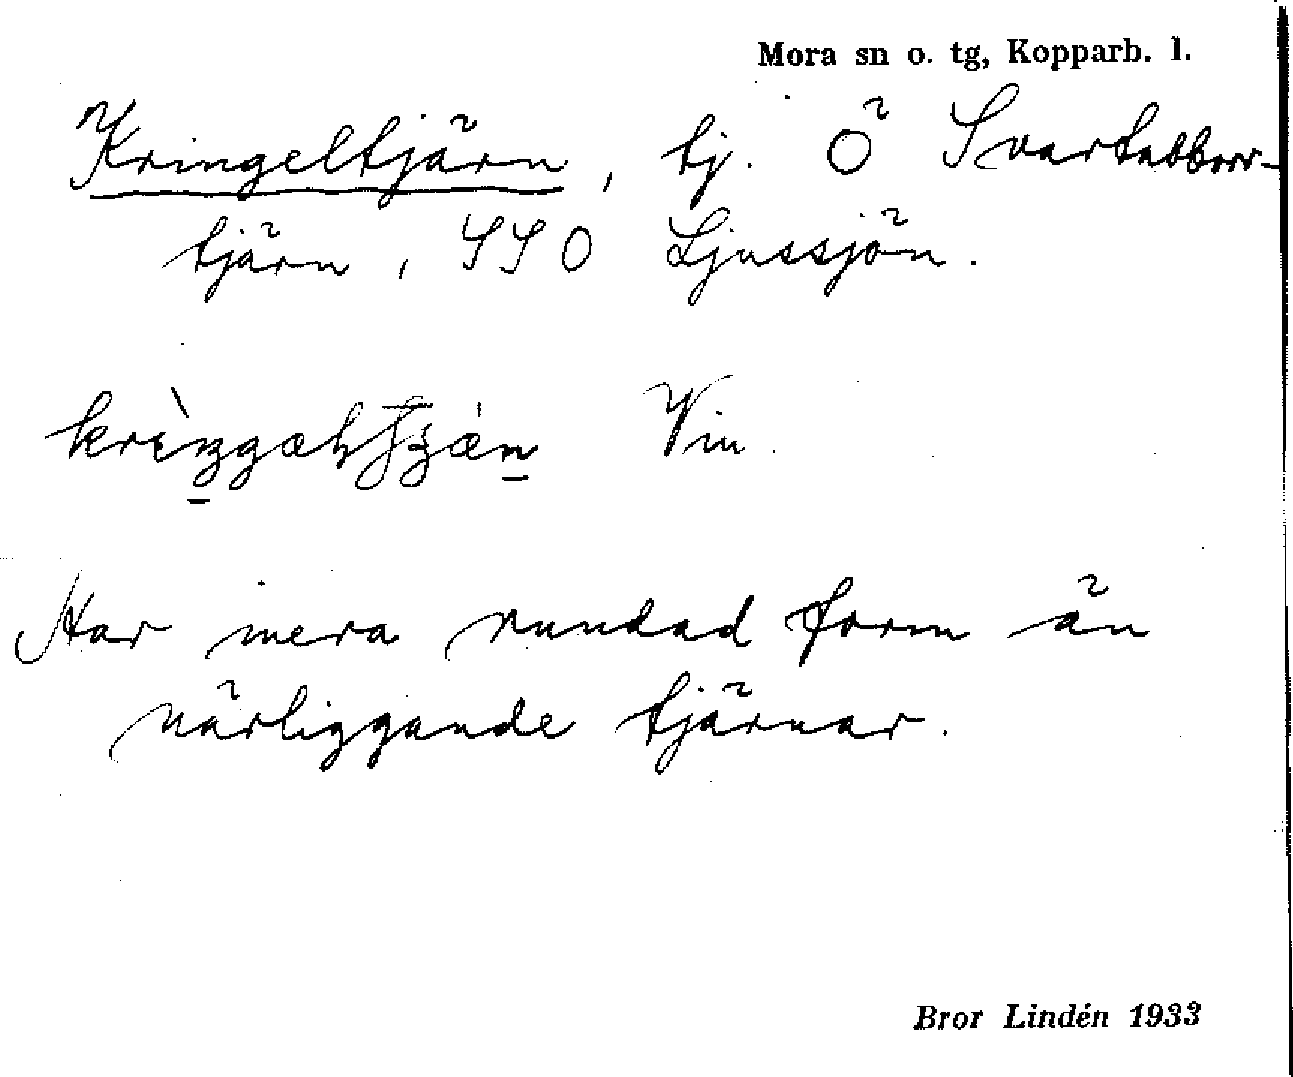 Mora sn o. tg, Kopparb. l.
Kringeltjärn, tj. Ö Svartabborr-
tjärn, SSO Ljussjön.
Vin.
Har mera rundad form än
närliggande tjärnar.
Bror Lindén 1933